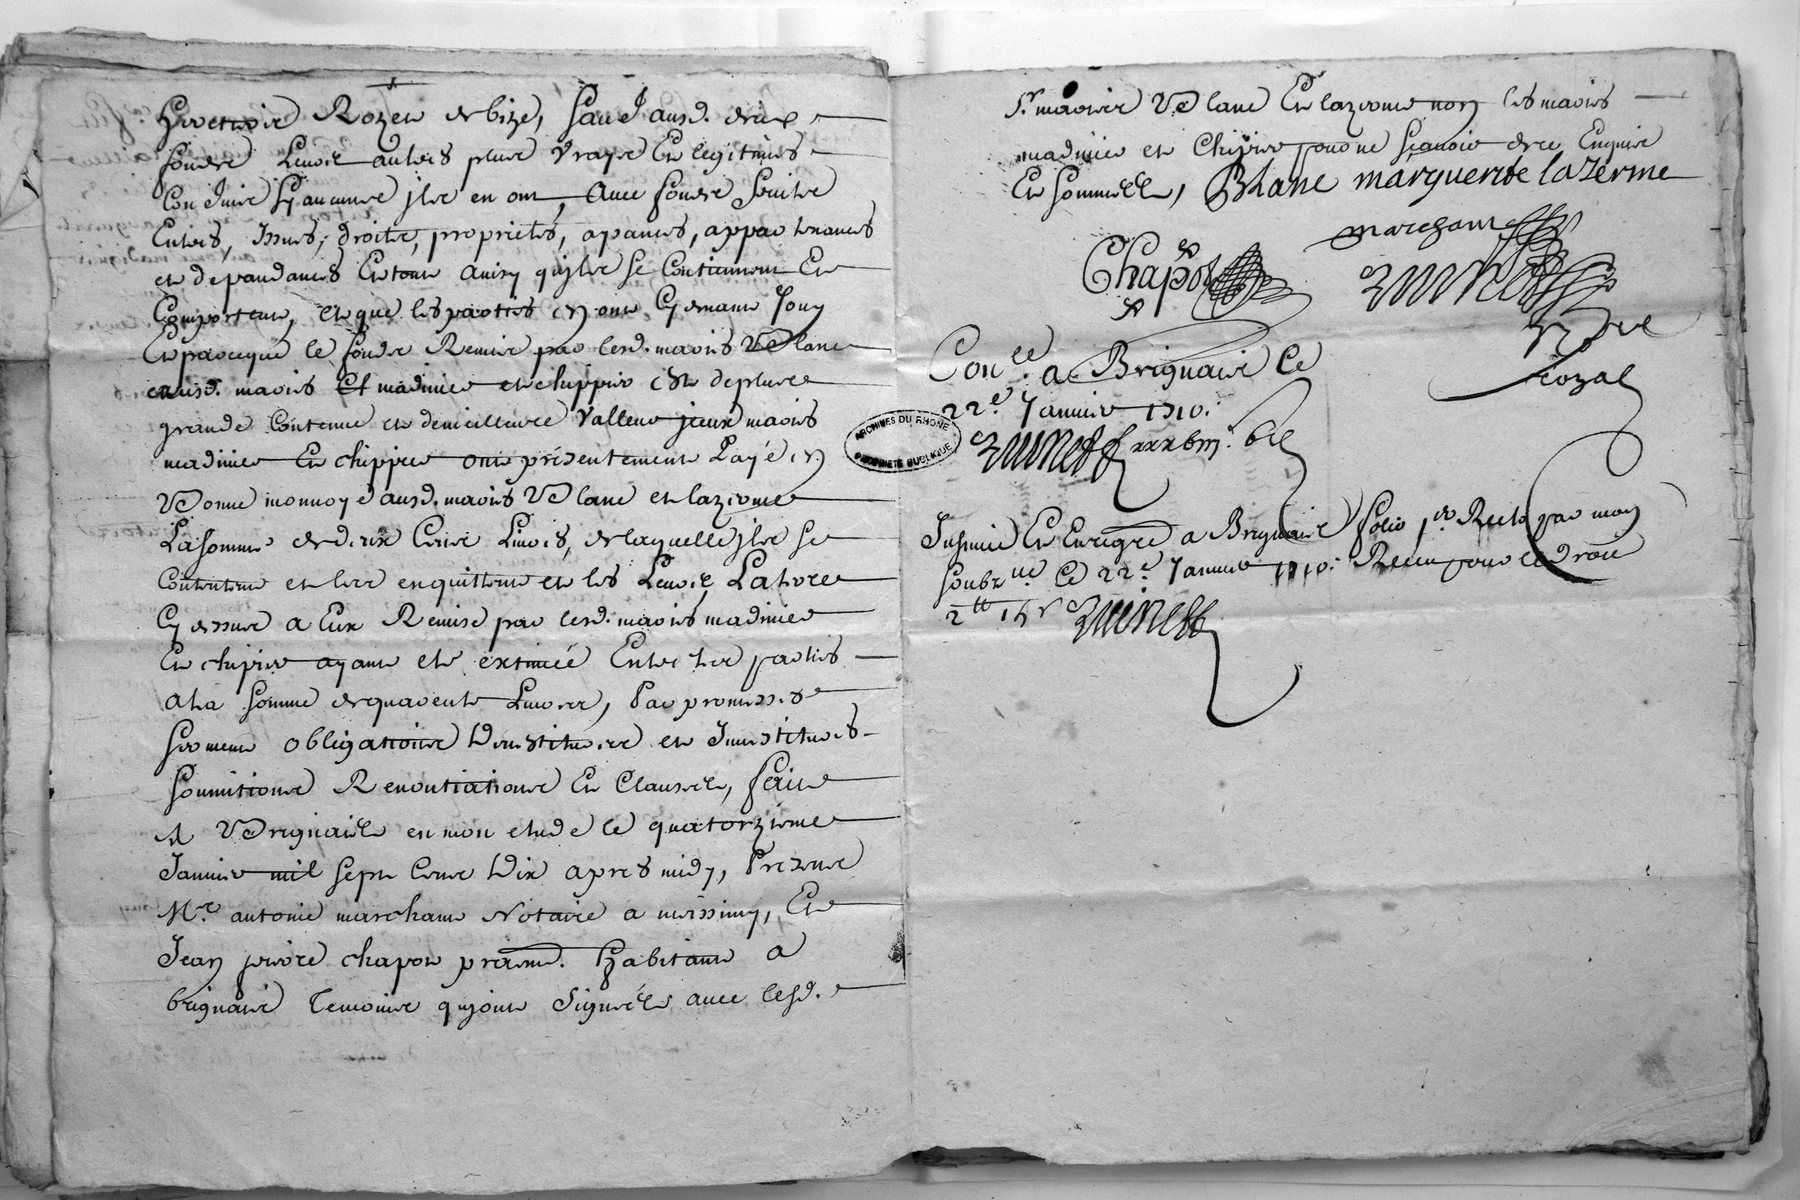 Rozet de bize, sauf ausd. deux
fondz Leurs autres plus vrays Et legitimes
Confins sy aucuns ilz en ont, avec fondz
Entrés, Issues, droits, proprietés, apances, appartenances
et depandances Et tout ainsy quilz se Contiennent Et
Comportent, et que les parties en ont Cy devant Jouy
Et parceque le fondz Remis par lesd. mariés Blanc
ausd. mariés Et madinier et chippier est de plus
grande Contenue et de meilleure Valleur iceux mariés
madinier Et chippier ont présentement Payé en
Bonne monnoye ausd. mariés Blanc et lazerme
La somme de dix Livres, de laquelle ilz se
Contentent et les en quittent et les
Cy dessus a Eux Remise par lesd. mariés madinier
Et chipier ayant eté extimée Entre les parties
a la somme de quarente Livres, Par promesses
serment obligations Constitutions et
soumitions Renontiations Et Clauses, fait
A Brignais en mon etude le quatorzieme
Janvier mil sept Cent Dix apres midy, Presents
Mr. antoine marchant Notaire a messimy, Et
Jean pierre chapot habitant a
brignais Temoins quiont Signés avec lesd.
sr. mariés Blanc Et lazerme non les mariés
madinier et Chipier pour ne scavoir de ce Enquis
Et sommés, Blanc marguerite lazerme
marchant
Chapot
Not.re
Royal
Con.lé a Brignais Ce
22.e Janvier 1710.
Insinué Et Enregré a Brignais folio Recto par moy
soubz.né Ce 22.e Janvier 1710. Receu pour le droit
ARCHIVES DU RHONE
PROPRIETE PUBLIQUE